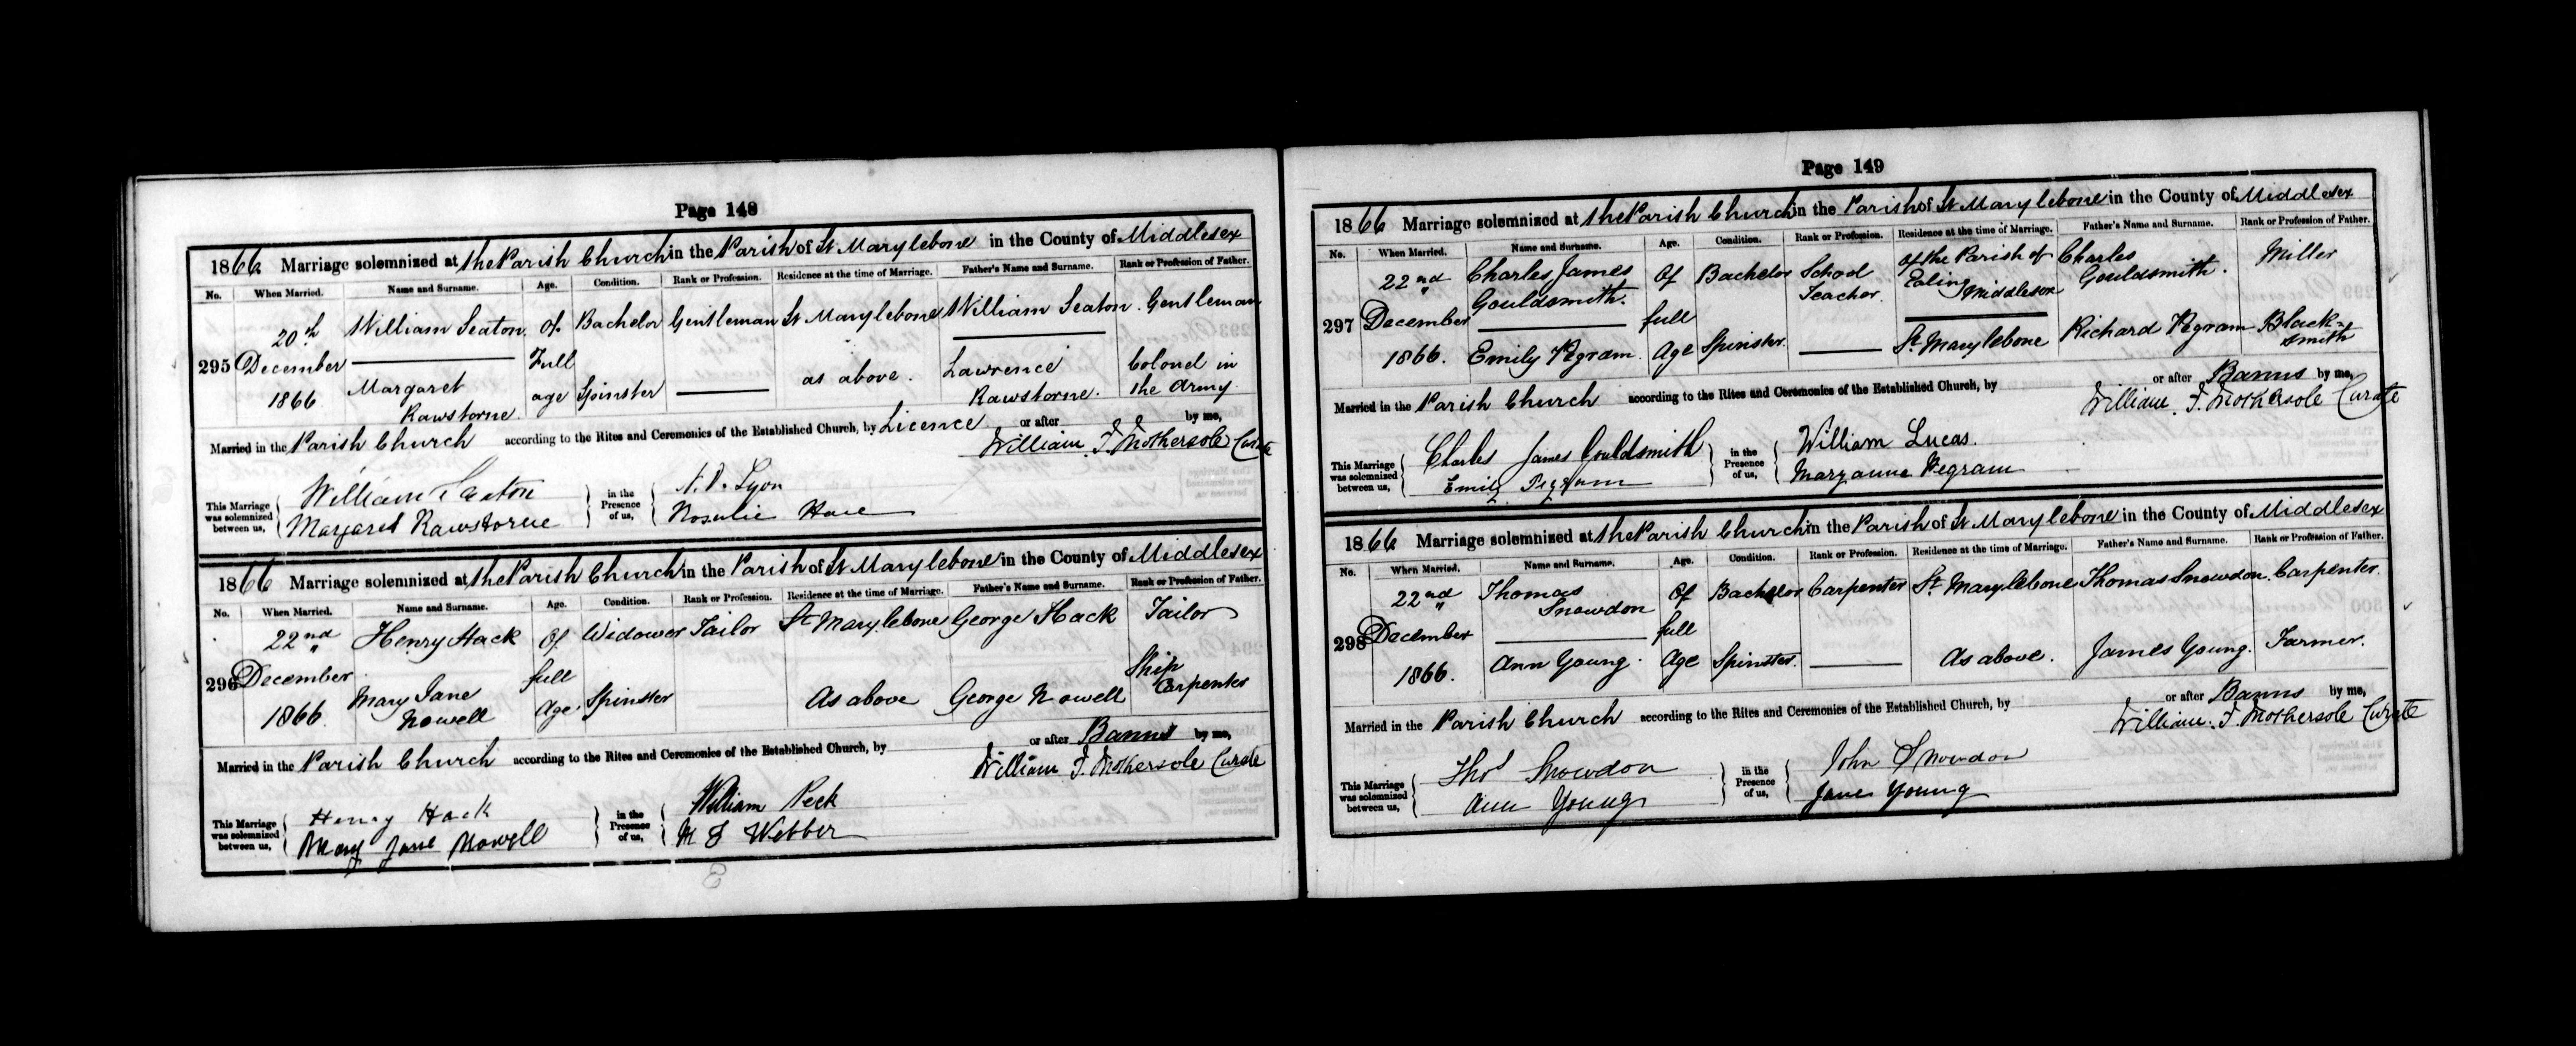 Page 148
1866 Marriage solemnized at the Parish Church in the Parish of St Marylebone in the County of Middlesex
No. When Married. Name and Surname. Age. Condition. Rank or Profession. Residence at the time of Marriage. Father's Name and Surname. Rank or Profession of Father.
20th William Seaton. of Bachelor Gentleman St Marylebone William Seaton. Gentleman
295 December Full
1866 Margaret Rawstorne. age Spinster as above. Lawrence Rawstorne. Colonel in the Army.
Married in the Parish Church according to the Rites and Ceremonies of the Established Church, by Licence or after by me,
William. F. Mothersole Curate
This Marriage was solemnized between us,
William Seaton
Margaret Rawstorne
in the Presence of us,
Lyon
Rosalie
1866 Marriage solemnized at the Parish Church in the Parish of St Marylebone in the County of Middlesex
No. When Married. Name and Surname. Age. Condition. Rank or Profession. Residence at the time of Marriage. Father's Name and Surname. Rank or Profession of Father.
22nd Henry Hack Of Widower Tailor St Marylebone George Hack Tailor
296 December full
1866. Mary Jane Nowell Age. Spinster As above George Nowell Ship Carpenter
Married in the Parish Church according to the Rites and Ceremonies of the Established Church, by or after Banns by me,
William F. Mothersole Curate
This Marriage was solemnized between us,
Henry Hack
Mary Jane Nowell
in the Presence of us,
William Peck
M S Webber
Page 149
1866 Marriage solemnized at the Parish Church in the Parish of St Marylebone in the County of Middlesex
No. When Married. Name and Surname. Age. Condition. Rank or Profession. Residence at the time of Marriage. Father's Name and Surname. Rank or Profession of Father.
22nd Charles James Gouldsmith. Of Bachelor School Teacher. of the Parish of Ealing Middlesex Charles Gouldsmith. Miller
297 December full
1866. Emily Pegram. Age Spinster. St Marylebone Richard Pegram Blacksmith
Married in the Parish Church according to the Rites and Ceremonies of the Established Church, by or after Banns by me,
William. F. Mothersole Curate
This Marriage was solemnized between us,
Charles James Gouldsmith
Emily Pegram
in the Presence of us,
William Lucas.
Maryanne Pegram
1866 Marriage solemnized at the Parish Church in the Parish of St Marylebone in the County of Middlesex
No. When Married. Name and Surname. Age. Condition. Rank or Profession. Residence at the time of Marriage. Father's Name and Surname. Rank or Profession of Father.
22nd Thomas Snowdon Of Bachelor Carpenter St Marylebone Thomas Snowdon. Carpenter.
298 December full
1866. Ann Young. Age Spinster. As above. James Young. Farmer.
Married in the Parish Church according to the Rites and Ceremonies of the Established Church, by or after Banns by me,
William. F. Mothersole Curate
This Marriage was solemnized between us,
Thos Snowdon
Ann Young
in the Presence of us,
John Snowdon
Jane Young